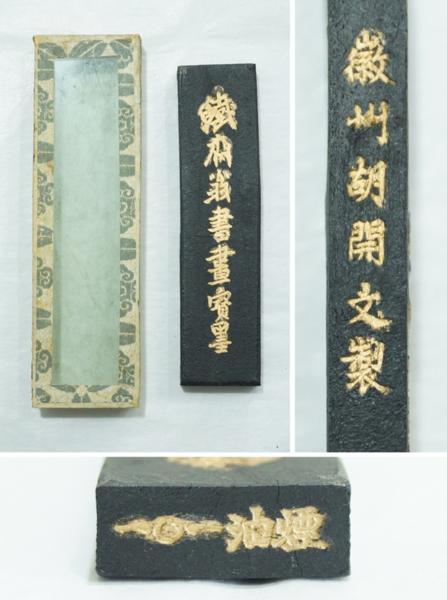 鐵斎翁書畫寶墨
徽州胡開文製
一〇一油煙